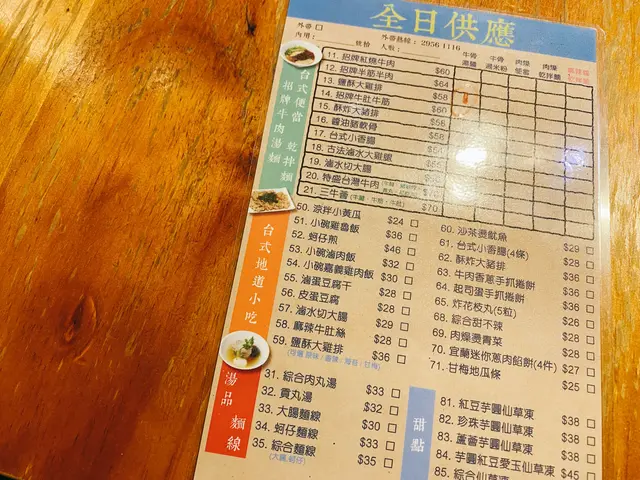 全日供應
外帶 □
內用： 外帶熱線：2956 1116
枱號 人數：
牛骨湯麵 牛骨湯米粉 肉燥便當 肉燥乾拌麵
台式便當 乾拌麵
招牌牛肉湯麵
11. 招牌紅燒牛肉 $60
12. 招牌半筋半肉 $64
13. 鹽酥大雞排 $58
14. 招牌牛肚牛筋 $60
15. 酥炸大豬排 $58
16. 醬油膶軟骨 $58
17. 台式小香腸
18. 古法滷水大雞腿
19. 滷水切大腸
20. 特盛台灣牛肉
21. 三牛薈 $70
台式地道小吃
50. 涼拌小黃瓜 $24 □
51. 小碗雞魯飯 $36 □
52. 蚵仔煎 $46 □
53. 小碗滷肉飯 $32 □
54. 小碗嘉義雞肉飯 $30 □
55. 滷蛋豆腐干 $28 □
56. 皮蛋豆腐 $28 □
57. 滷水切大腸 $29 □
58. 麻辣牛肚絲 $28 □
59. 鹽酥大雞排 $36 □
60. 沙茶燙魷魚 $29 □
61. 台式小香腸(4條) $28 □
62. 酥炸大豬排 $36 □
63. 牛肉香蔥手抓捲餅 $36 □
64. 起司蛋手抓捲餅 $36 □
65. 炸花枝丸(5粒) $36 □
68. 綜合甜不辣 $26 □
69. 肉燥燙青菜 $28 □
70. 宜蘭迷你蔥肉餡餅(4件) $27 □
71. 甘梅地瓜條 $25 □
湯品 麵線
31. 綜合肉丸湯 $33 □
32. 貢丸湯 $32 □
33. 大腸麵線 $30 □
34. 蚵仔麵線 $33 □
35. 綜合麵線 $35 □
(大腸,蚵仔)
甜點
81. 紅豆芋圓仙草凍 $38 □
82. 珍珠芋圓仙草凍 $38 □
83. 蘆薈芋圓仙草凍 $38 □
84. 芋圓紅豆愛玉仙草凍 $45 □
85. 綜合仙草凍